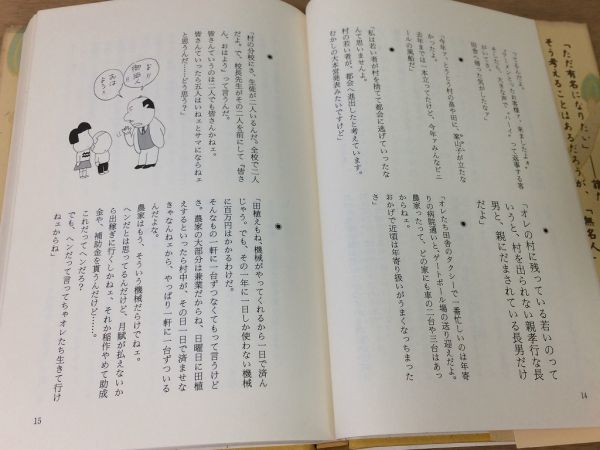 「ただ有名になりたい」
そう考えることはあるだろうが、
「無名人
田舎へ帰った気がしたな？」
「今年ァ、とうとう村の畠や田に、案山子が立たな
かったよ。
去年までは一本立ってたけど、今年ァみんなビニ
ールの風船だ」
「私は若い者が村を捨てて都会に逃げていったな
んて思いませんよ。
村の若い者が、都会へ進出したと考えています。
むかしの大本営発表みたいですけど」
「オレの村に残っている若いのって
いうと、村を出られない親孝行な長
男と、親にだまされている長男だけ
だよ」
「オレたち田舎のタクシーで一番忙しいのは年寄
りの病院通いと、ゲートボール場の送り迎えだよ。
農家ったって、どの家にも車の二台や三台はあっ
からねェ。
おかげで近頃は年寄り扱いがうまくなっちまった
さ」
14
「村の分校にさ、生徒が二人いるんだ。全校で二人
だよ。で、校長先生がその二人を前にして『皆さ
ん、おはよう』って言うんだ。
皆さんていうのは二人でも皆さんかねェ。
皆さんていったら五人はいねェとサマにならねェ
と思うんだ……どう思う？」
「田植えもね、機械がやってくれるから一日で済ん
じゃう。でも、その一年に一日しか使わない機械
に百万円はかかるわけだ。
そんなもの一軒に一台ずつなくてもって言うけど
さ。農家の大部分は兼業だからね、日曜日に田植
えするといったら村中が、その日一日で済ませな
きゃなんねェから、やっぱり一軒に一台ずついる
んだよな。
農家はもう、そういう機械だらけでねェ。
ヘンだとは思ってるんだけど、月賦が払えないか
ら出稼ぎに行くしかねェ、それか稲作やめて助成
金や、補助金を貰うんだけど……。
これだってヘンだろ？
でも、ヘンだって言ってちゃオレたち生きて行け
ねェからね」
15